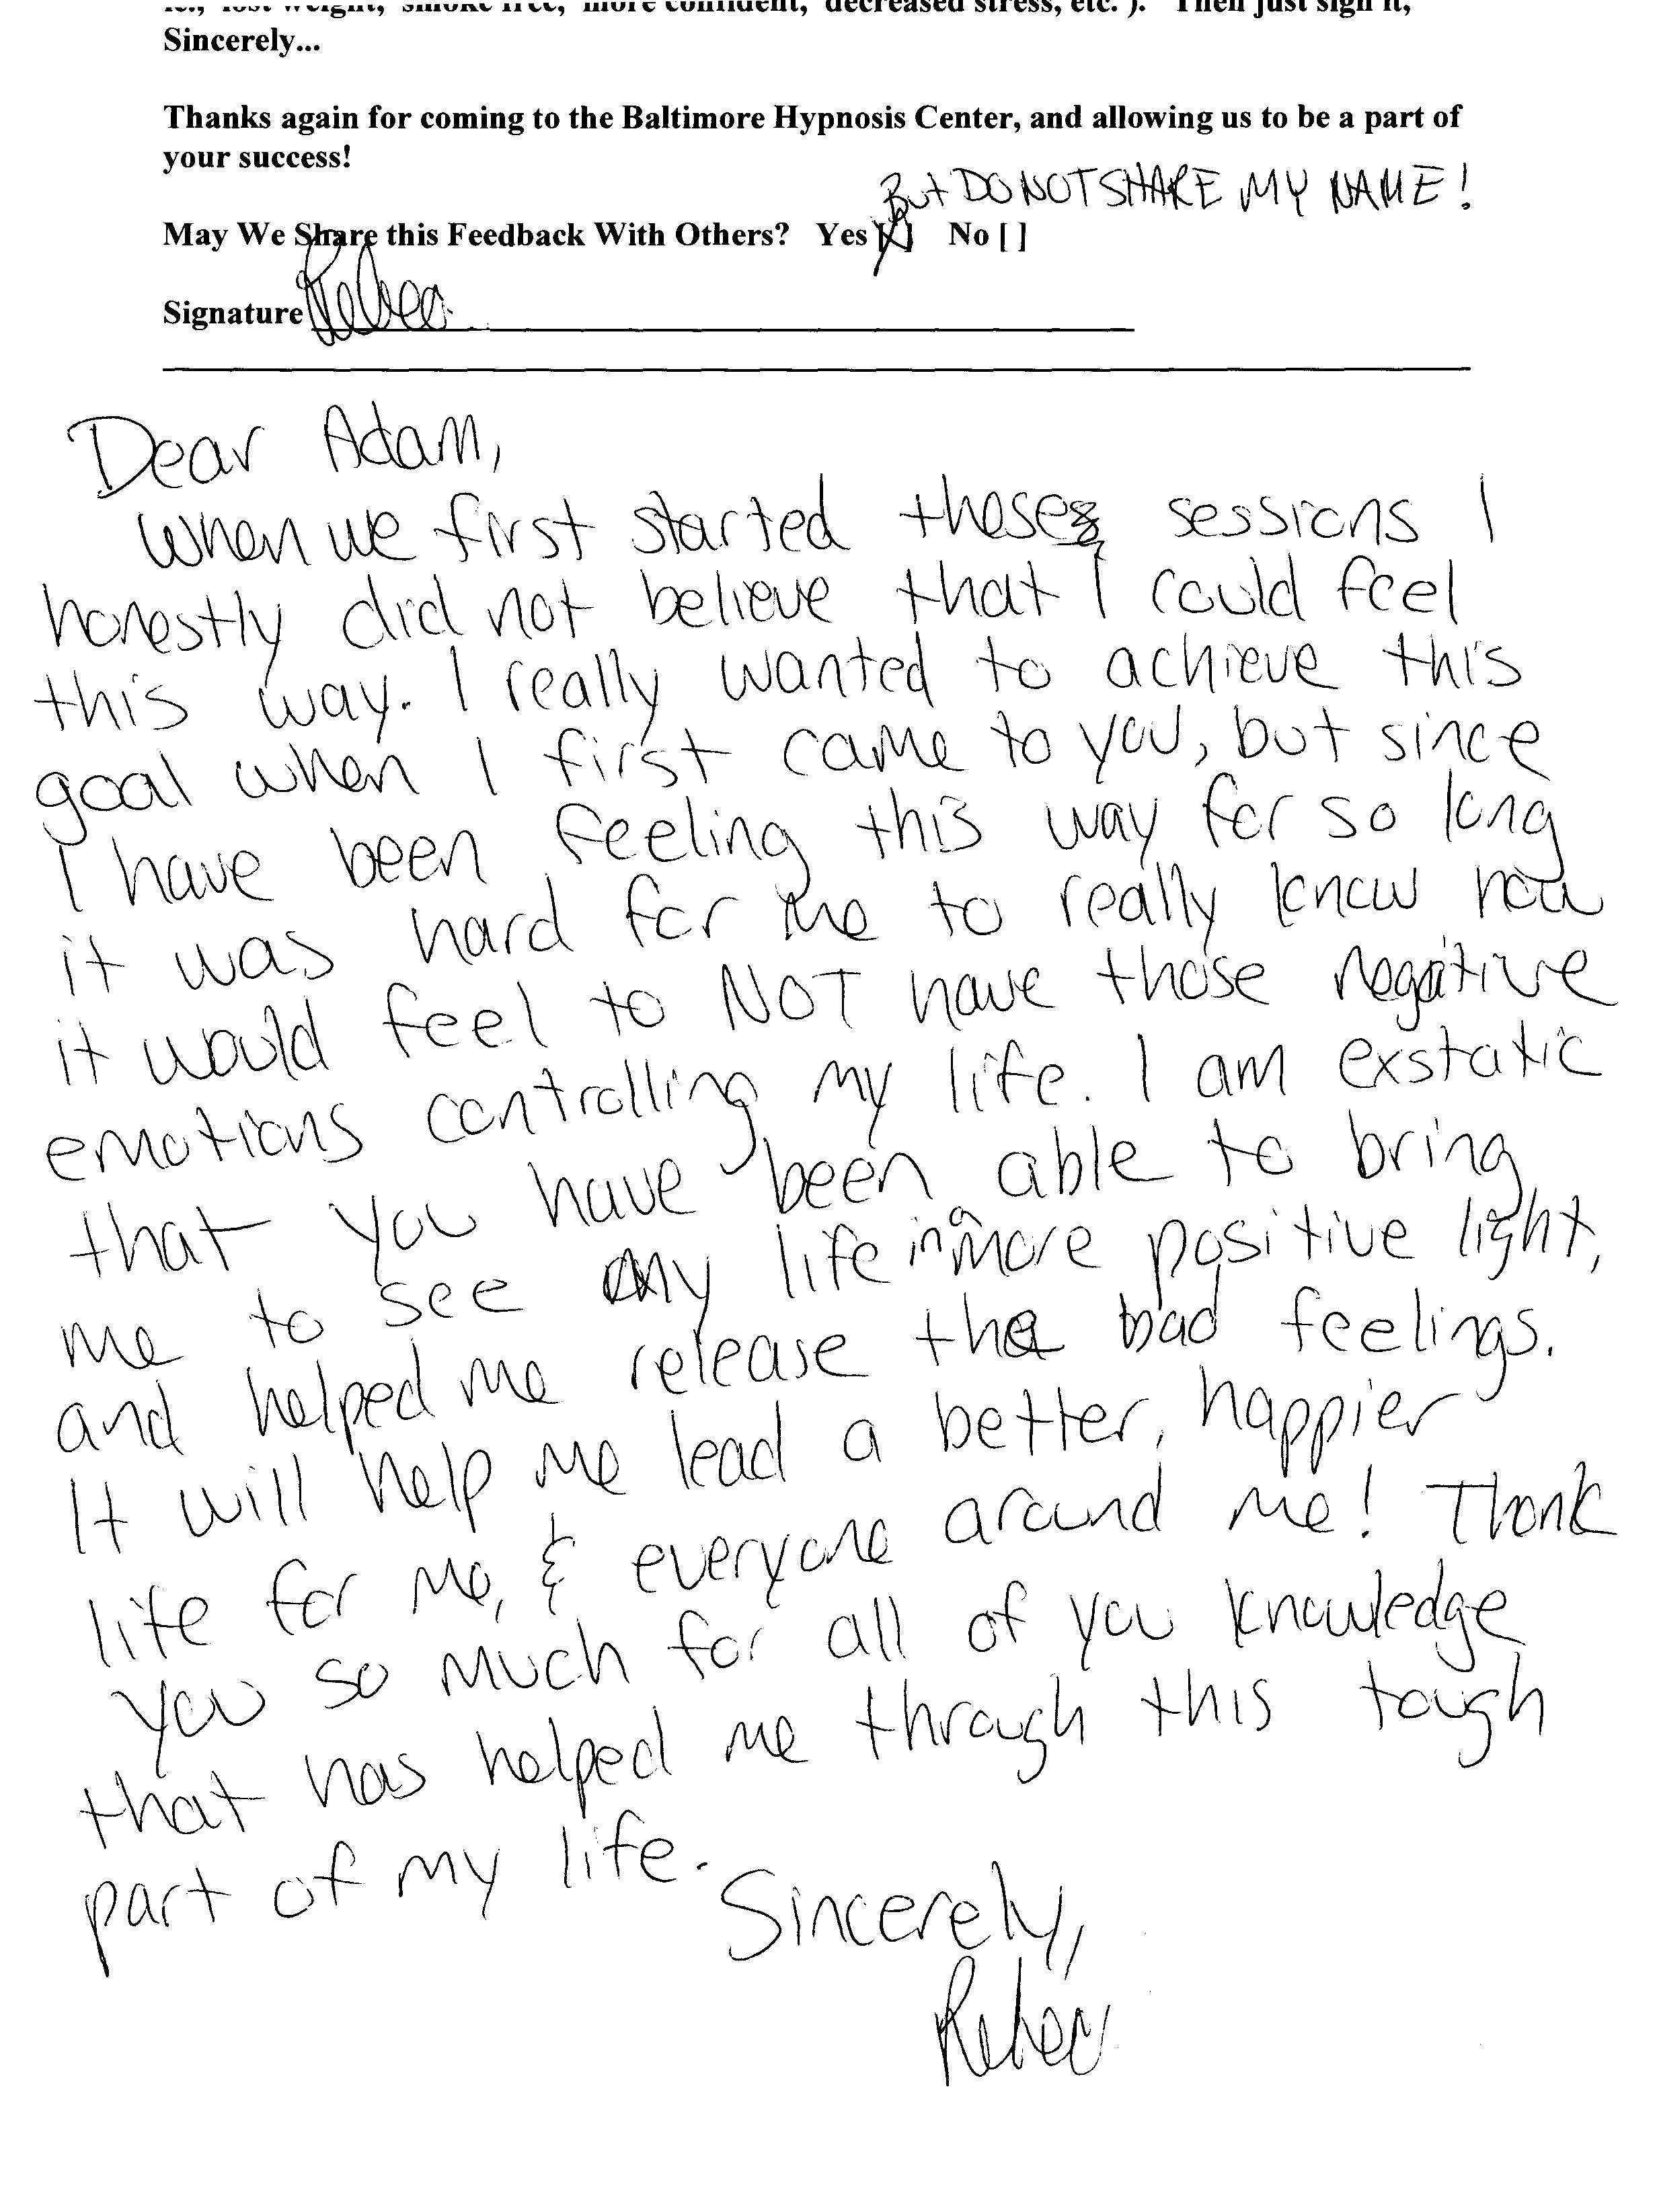 ie., lost weight, smoke free, more confident, decreased stress, etc. ). Then just sign it,
Sincerely...
Thanks again for coming to the Baltimore Hypnosis Center, and allowing us to be a part of
your success!
But DO NOT SHARE MY NAME!
May We Share this Feedback With Others? Yes [X] No [ ]
Signature
Dear Adam,
When we first started these sessions I
honestly did not believe that I could feel
this way. I really wanted to achieve this
goal when I first came to you, but since
I have been feeling this way for so long
it was hard for me to really know how
it would feel to NOT have those negative
emotions controlling my life. I am exstatic
that you have been able to bring
me to see my life in a more positive light,
and helped me release the bad feelings.
It will help me lead a better, happier
life for me, & everyone around me! Thank
you so much for all of you knowledge
that has helped me through this tough
part of my life.
Sincerely,